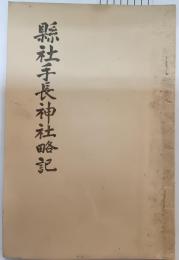 縣社手長神社略記